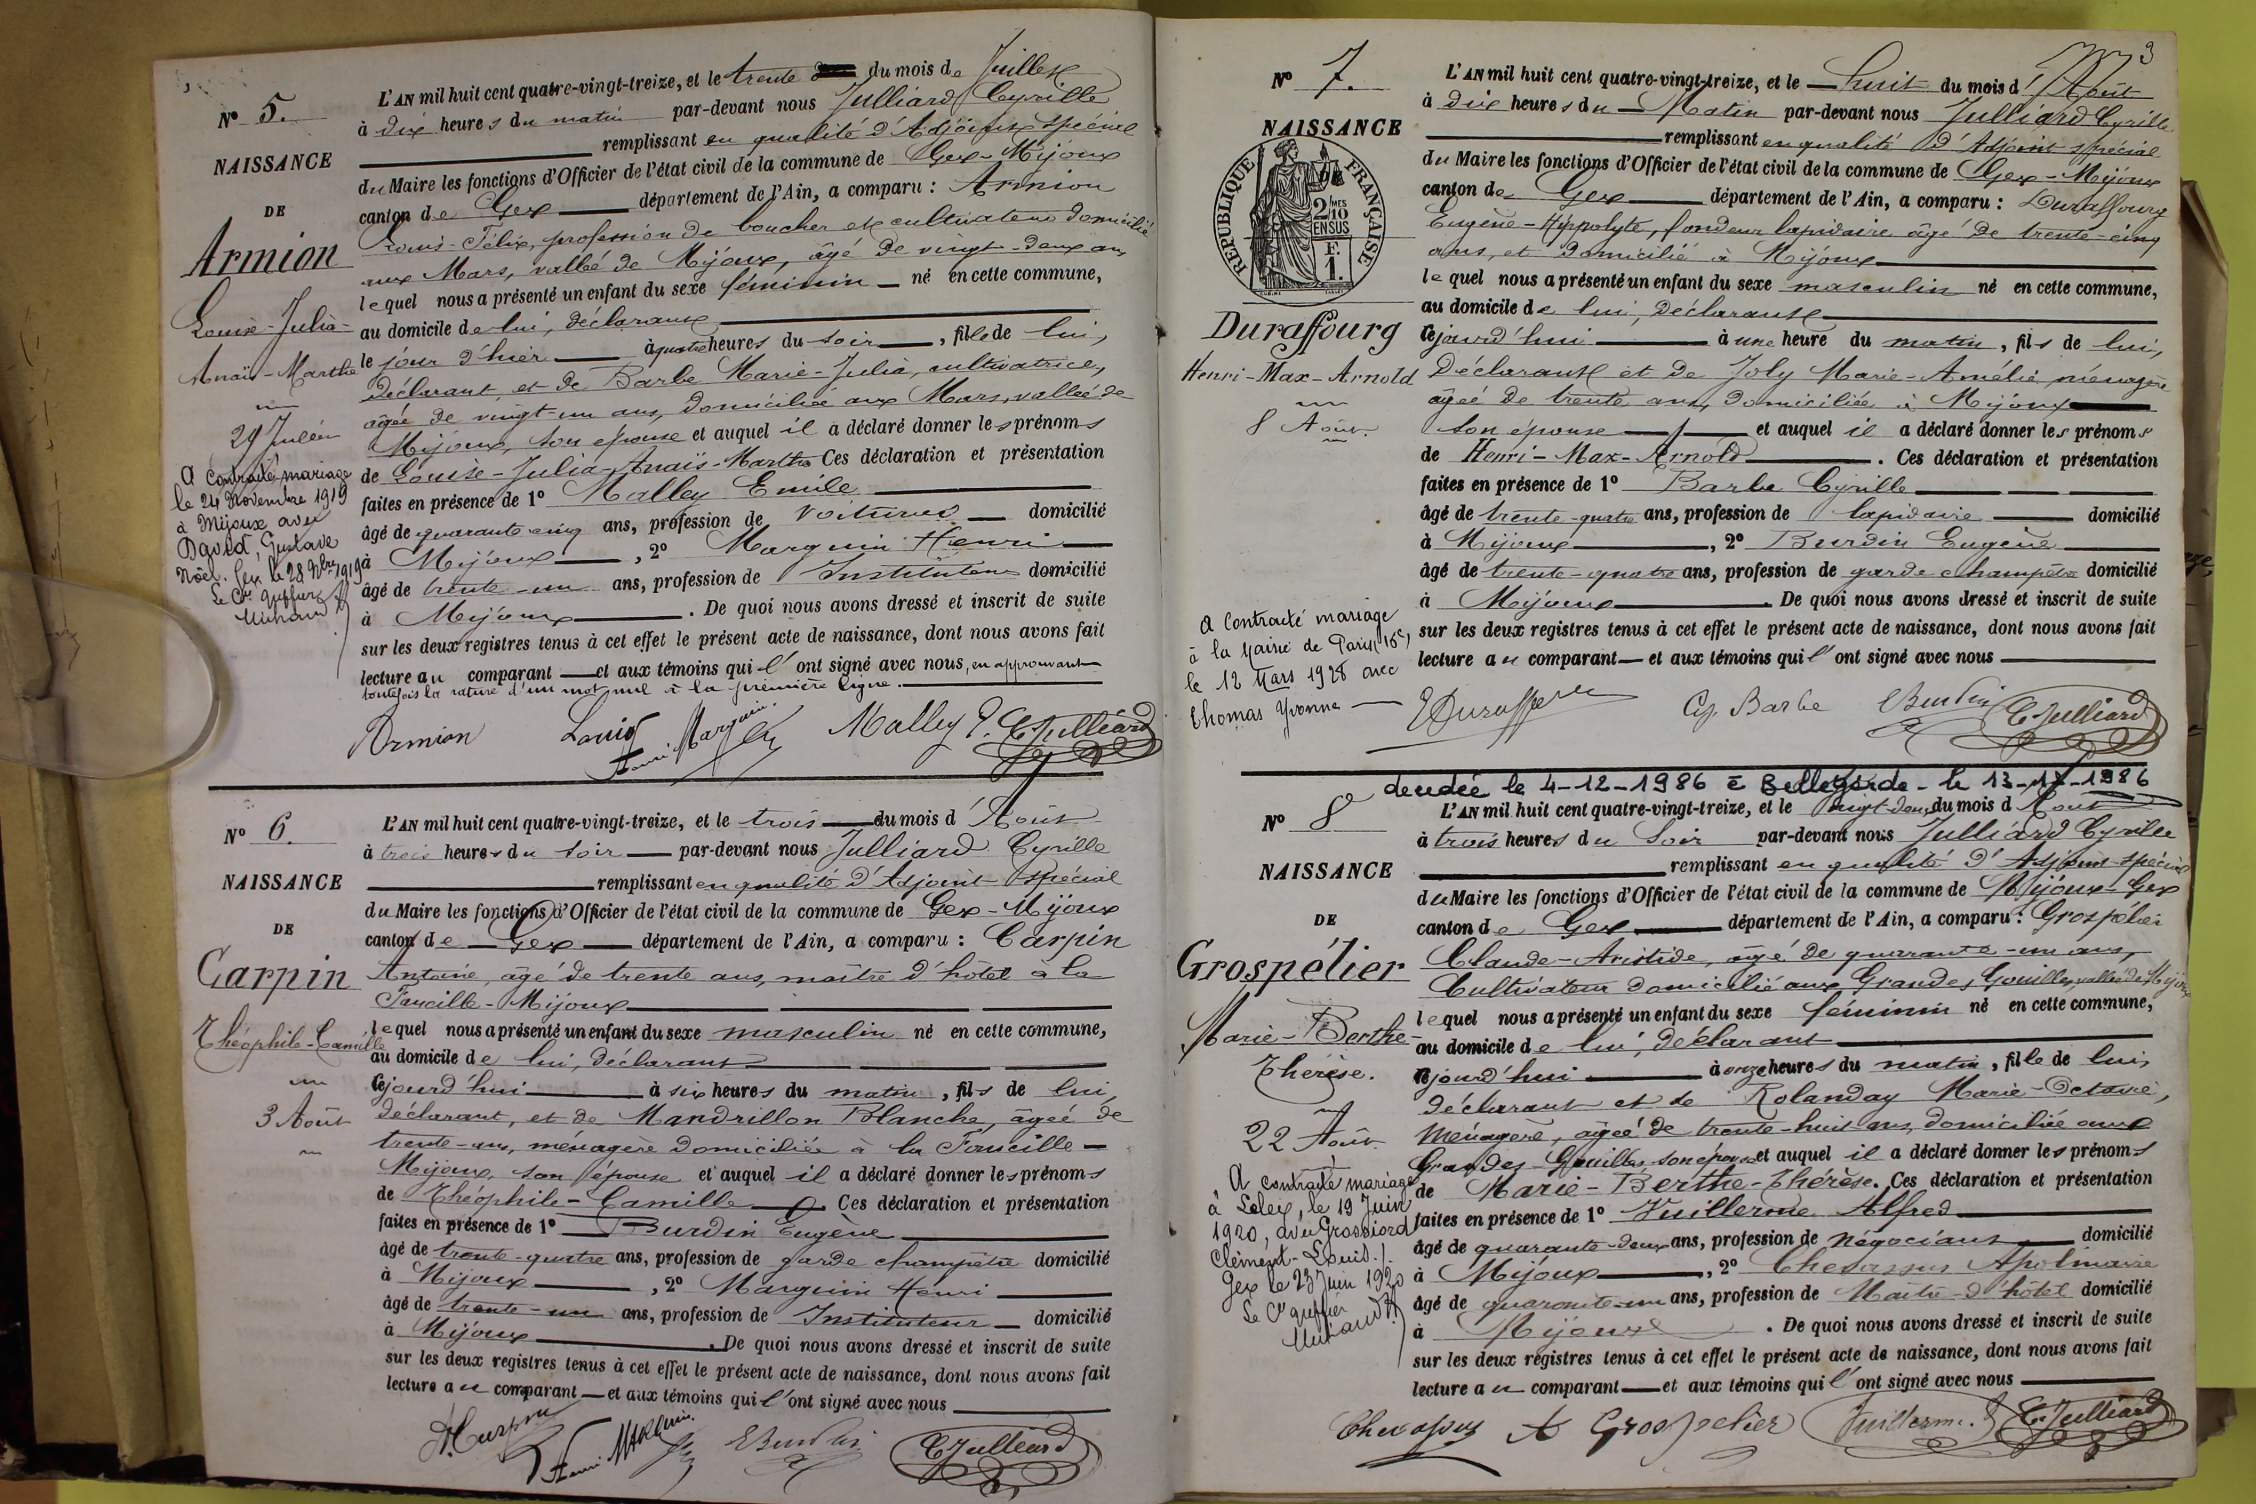 N° 5.
NAISSANCE
DE
Armion
Louise-Julia-
Anaïs-Marthe
29 Juillet
A contracté mariage
le 24 Novembre 1919
à Mijoux avec
David, Gustave
Noël. Gex le 28 9bre 1919
Le Cis greffier
L'AN mil huit cent quatre-vingt-treize, et le trente du mois de Juillet
à dix heures du matin par-devant nous Julliard Cyrille
remplissant en qualité d'Adjoint spécial
du Maire les fonctions d'Officier de l'état civil de la commune de Gex-Mijoux
canton de Gex département de l'Ain, a comparu : Armion
Louis-Félix, profession de boucher et cultivateur domicilié
aux Mars, vallée de Mijoux, âgé de vingt-deux ans
lequel nous a présenté un enfant du sexe féminin né en cette commune,
au domicile de lui, déclarant
le jour d'hier à quatre heures du soir, fille de lui,
déclarant, et de Barbe Marie-Julia, cultivatrice,
âgée de vingt-un ans, domiciliée aux Mars, vallée de
Mijoux, son épouse et auquel il a déclaré donner les prénoms
de Louise-Julia-Anaïs-Marthe Ces déclaration et présentation
faites en présence de 1° Malley Emile
âgé de quarante cinq ans, profession de voiturier domicilié
à Mijoux, 2° Marguin Henri
âgé de trente-un ans, profession de Instituteur domicilié
à Mijoux. De quoi nous avons dressé et inscrit de suite
sur les deux registres tenus à cet effet le présent acte de naissance, dont nous avons fait
lecture au comparant et aux témoins qui l'ont signé avec nous, en approuvant
toutefois la rature d'un mot nul à la première ligne.
Armion Louis Henri Marguin Malley E. C. Julliard
N° 6.
NAISSANCE
DE
Carpin
Théophile-Camille
3 Août
L'AN mil huit cent quatre-vingt-treize, et le trois du mois d'Août
à trois heures du soir par-devant nous Julliard Cyrille
remplissant en qualité d'Adjoint spécial
du Maire les fonctions d'Officier de l'état civil de la commune de Gex-Mijoux
canton de Gex département de l'Ain, a comparu : Carpin
Antoine, âgé de trente ans, maître d'hôtel à la
Faucille-Mijoux
lequel nous a présenté un enfant du sexe masculin né en cette commune,
au domicile de lui, déclarant
cejourd'hui à six heures du matin, fils de lui
déclarant, et de Mandrillon Blanche, âgée de
trente-ans, ménagère domiciliée à la Faucille-
Mijoux, son épouse et auquel il a déclaré donner les prénoms
de Théophile-Camille Ces déclaration et présentation
faites en présence de 1° Burdin Eugène
âgé de trente-quatre ans, profession de garde champêtre domicilié
à Mijoux, 2° Marguin Henri
âgé de trente-un ans, profession de Instituteur domicilié
à Mijoux. De quoi nous avons dressé et inscrit de suite
sur les deux registres tenus à cet effet le présent acte de naissance, dont nous avons fait
lecture au comparant et aux témoins qui l'ont signé avec nous
A. Carpin Henri Marguin E Burdin C. Julliard
3
N° 7.
NAISSANCE
DE
RÉPUBLIQUE FRANÇAISE
2/MES
10
EN SUS
F.
1.
Duraffourg
Henri-Max-Arnold
8 Août.
A contracté mariage
à la Mairie de Paris 16e,
le 12 Mars 1928 avec
Thomas Yvonne
L'AN mil huit cent quatre-vingt-treize, et le huit du mois d'Août
à dix heures du Matin par-devant nous Julliard Cyrille
remplissant en qualité d'Adjoint spécial
du Maire les fonctions d'Officier de l'état civil de la commune de Gex-Mijoux
canton de Gex département de l'Ain, a comparu : Duraffourg
Eugène-Hippolyte, fondeur lapidaire âgé de trente-cinq
ans, et domicilié à Mijoux
lequel nous a présenté un enfant du sexe masculin né en cette commune,
au domicile de lui, déclarant
cejourd'hui à une heure du matin, fils de lui,
déclarant et de Joly Marie-Amélie ménagère
âgée de trente ans, domiciliée à Mijoux
son épouse et auquel il a déclaré donner les prénoms
de Henri-Max-Arnold. Ces déclaration et présentation
faites en présence de 1° Barbe Cyrille
âgé de trente-quatre ans, profession de lapidaire domicilié
à Mijoux, 2° Burdin Eugène
âgé de trente-quatre ans, profession de garde champêtre domicilié
à Mijoux. De quoi nous avons dressé et inscrit de suite
sur les deux registres tenus à cet effet le présent acte de naissance, dont nous avons fait
lecture au comparant et aux témoins qui l'ont signé avec nous
Cy. Barbe E Burdin C. Julliard
decedée le 4-12-1986 à Bellegarde - le 13-12-1986
N° 8
NAISSANCE
DE
Grospélier
Marie-Berthe-
Thérèse.
22 Août
A contracté mariage
à Lelex, le 19 Juin
1920, avec Grossiord
Clément-Louis./.
Gex le 23 Juin 1920
Le Cis greffier
L'AN mil huit cent quatre-vingt-treize, et le vingt-deux du mois d'Août
à trois heures du Soir par-devant nous Julliard Cyrille
remplissant en qualité d'Adjoint-spécial
du Maire les fonctions d'Officier de l'état civil de la commune de Mijoux-Gex
canton de Gex département de l'Ain, a comparu : Grospélier
Claude-Aristide, âgé de quarante-un ans,
Cultivateur domicilié aux Grandes Gouilles, vallée de Mijoux
lequel nous a présenté un enfant du sexe féminin né en cette commune,
au domicile de lui, déclarant
cejourd'hui à onze heures du matin, fille de lui,
déclarant et de Rolanday Marie-Octavie,
Ménagère, âgée de trente-huit ans, domiciliée aux
Grandes-Gouilles son épouse et auquel il a déclaré donner les prénoms
de Marie-Berthe-Thérèse. Ces déclaration et présentation
faites en présence de 1° Vuillerme Alfred
âgé de quarante-deux ans, profession de négociant domicilié
à Mijoux, 2° Chevassus Apolinaire
âgé de quarante-un ans, profession de Maître-d'hôtel domicilié
à Mijoux. De quoi nous avons dressé et inscrit de suite
sur les deux registres tenus à cet effet le présent acte de naissance, dont nous avons fait
lecture au comparant et aux témoins qui l'ont signé avec nous
Chevassus A Grospelier Vuillerme. C. Julliard